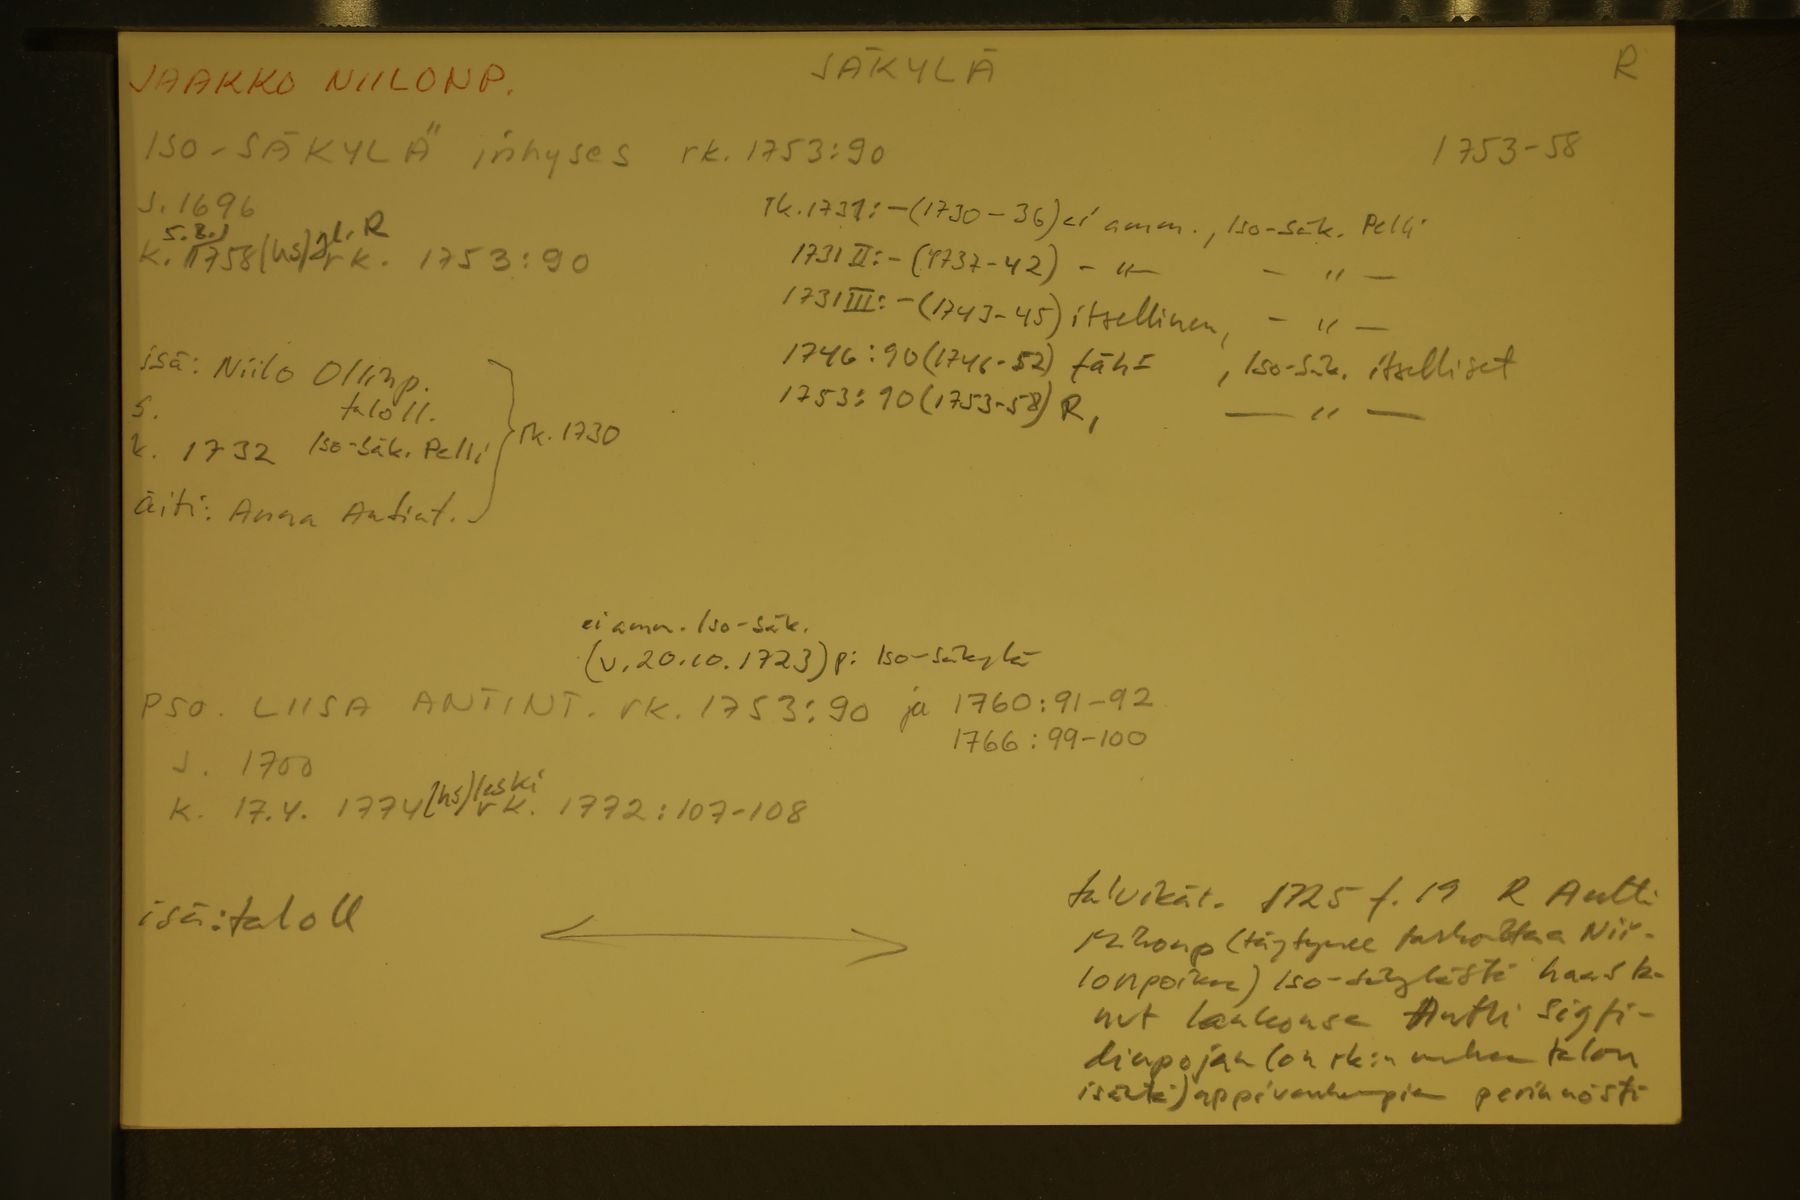 JAAKKO NIILONP.
SÄKYLÄ
R
ISO-SÄKYLÄ inhyses rk. 1753:90
1753-58
s. 1696
5.8.
k. 1758 (hs) R rk. 1753:90
rk. 1731: -(1730-36) ei amm., Iso-Säk. Pelli
1731 II: -(1737-42) -"- -"-
1731 III: -(1743-45) itsellinen, -"-
1746:90 (1746-52) , Iso-Säk. itselliset
1753:90 (1753-58) R, -"-
isä: Niilo Ollinp.
s. taloll.
k. 1732 Iso-Säk. Pelli
rk. 1730
äiti: Anna Antint.
ei amm. Iso-Säk.
(v. 20.10.1723) p: Iso-Säkylä
PSO. LIISA ANTINT. rk. 1753:90 ja 1760:91-92
1766:99-100
s. 1700
k. 17.4. 1774 (hs) leski rk. 1772:107-108
isä: taloll
talvikär. 1725 f. 19 R Antti
(täytynee tarkoittaa Nii-
lonpoikaa) Iso-Säkylästä haasta-
nut lankonsa Antti Sigfri-
dinpojan (on rk:n mukaan talon
isäntä) appivanhempien perinnöstä